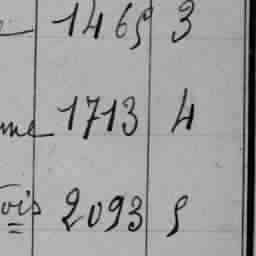 1465 3
me 1713 4
ois 2093 5